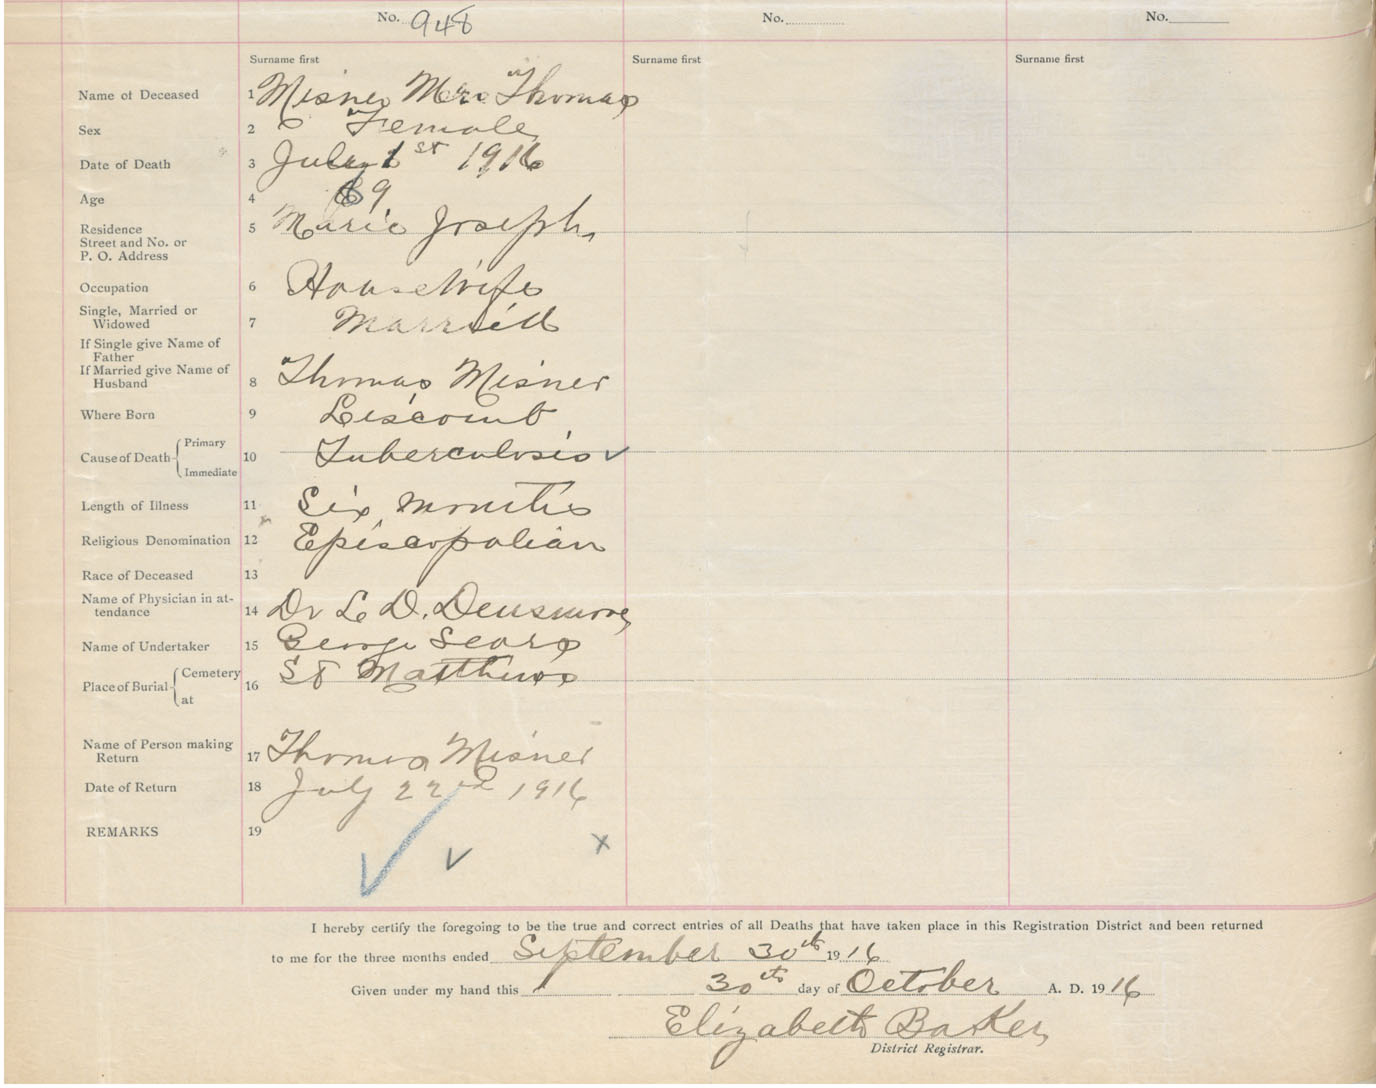 No. 948 No. No.
Surname first Surname first Surname first
Name of Deceased 1 Misner Mrs Thomas
Sex 2 Female
Date of Death 3 July 1st 1916
Age 4 69
Residence 5 Marie Joseph
Street and No. or
P. O. Address
Occupation 6 Housewife
Single, Married or
Widowed 7 Married
If Single give Name of
Father
If Married give Name of
Husband 8 Thomas Misner
Where Born 9 Liscomb
Cause of Death Primary
Immediate 10 Tuberculosis ✓
Length of Illness 11 Six months
Religious Denomination 12 Episcopalian
Race of Deceased 13
Name of Physician in at-
tendance 14 Dr L. D. Densmore
Name of Undertaker 15 George Sears
Place of Burial Cemetery
at 16 St Matthews
Name of Person making
Return 17 Thomas Misner
Date of Return 18 July 22nd 1916
REMARKS 19
✓ ✓ x
I hereby certify the foregoing to be the true and correct entries of all Deaths that have taken place in this Registration District and been returned
to me for the three months ended September 30th 1916
Given under my hand this 30th day of October A. D. 1916
Elizabeth Baker
District Registrar.